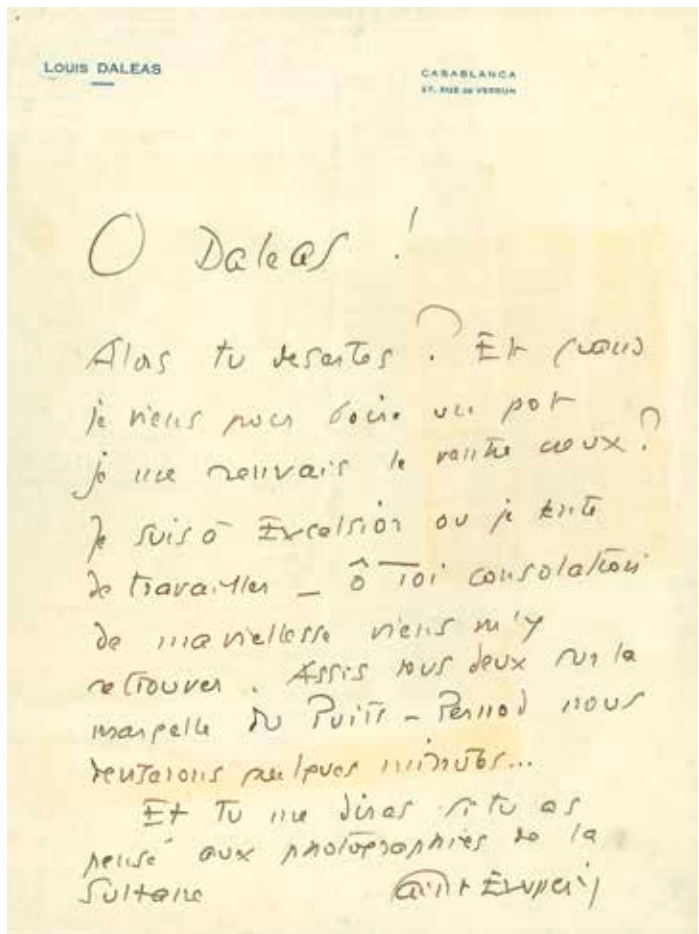 LOUIS DALEAS
CASABLANCA
27, RUE DE VERDUN
O Daleas !
Alors tu desertes ? Et quand
je viens pour boire un pot
je me renvais le ventre creux ?
Je suis à Excelsior ou je tente
de travailler _ ô Toi consolation
de ma viellesse viens m'y
retrouver . Assis tous deux sur la
margelle du Puits - Pernod nous
quelques minutes...
Et tu me diras si tu as
pensé aux photographies de la
Sultane Saint Exupéry